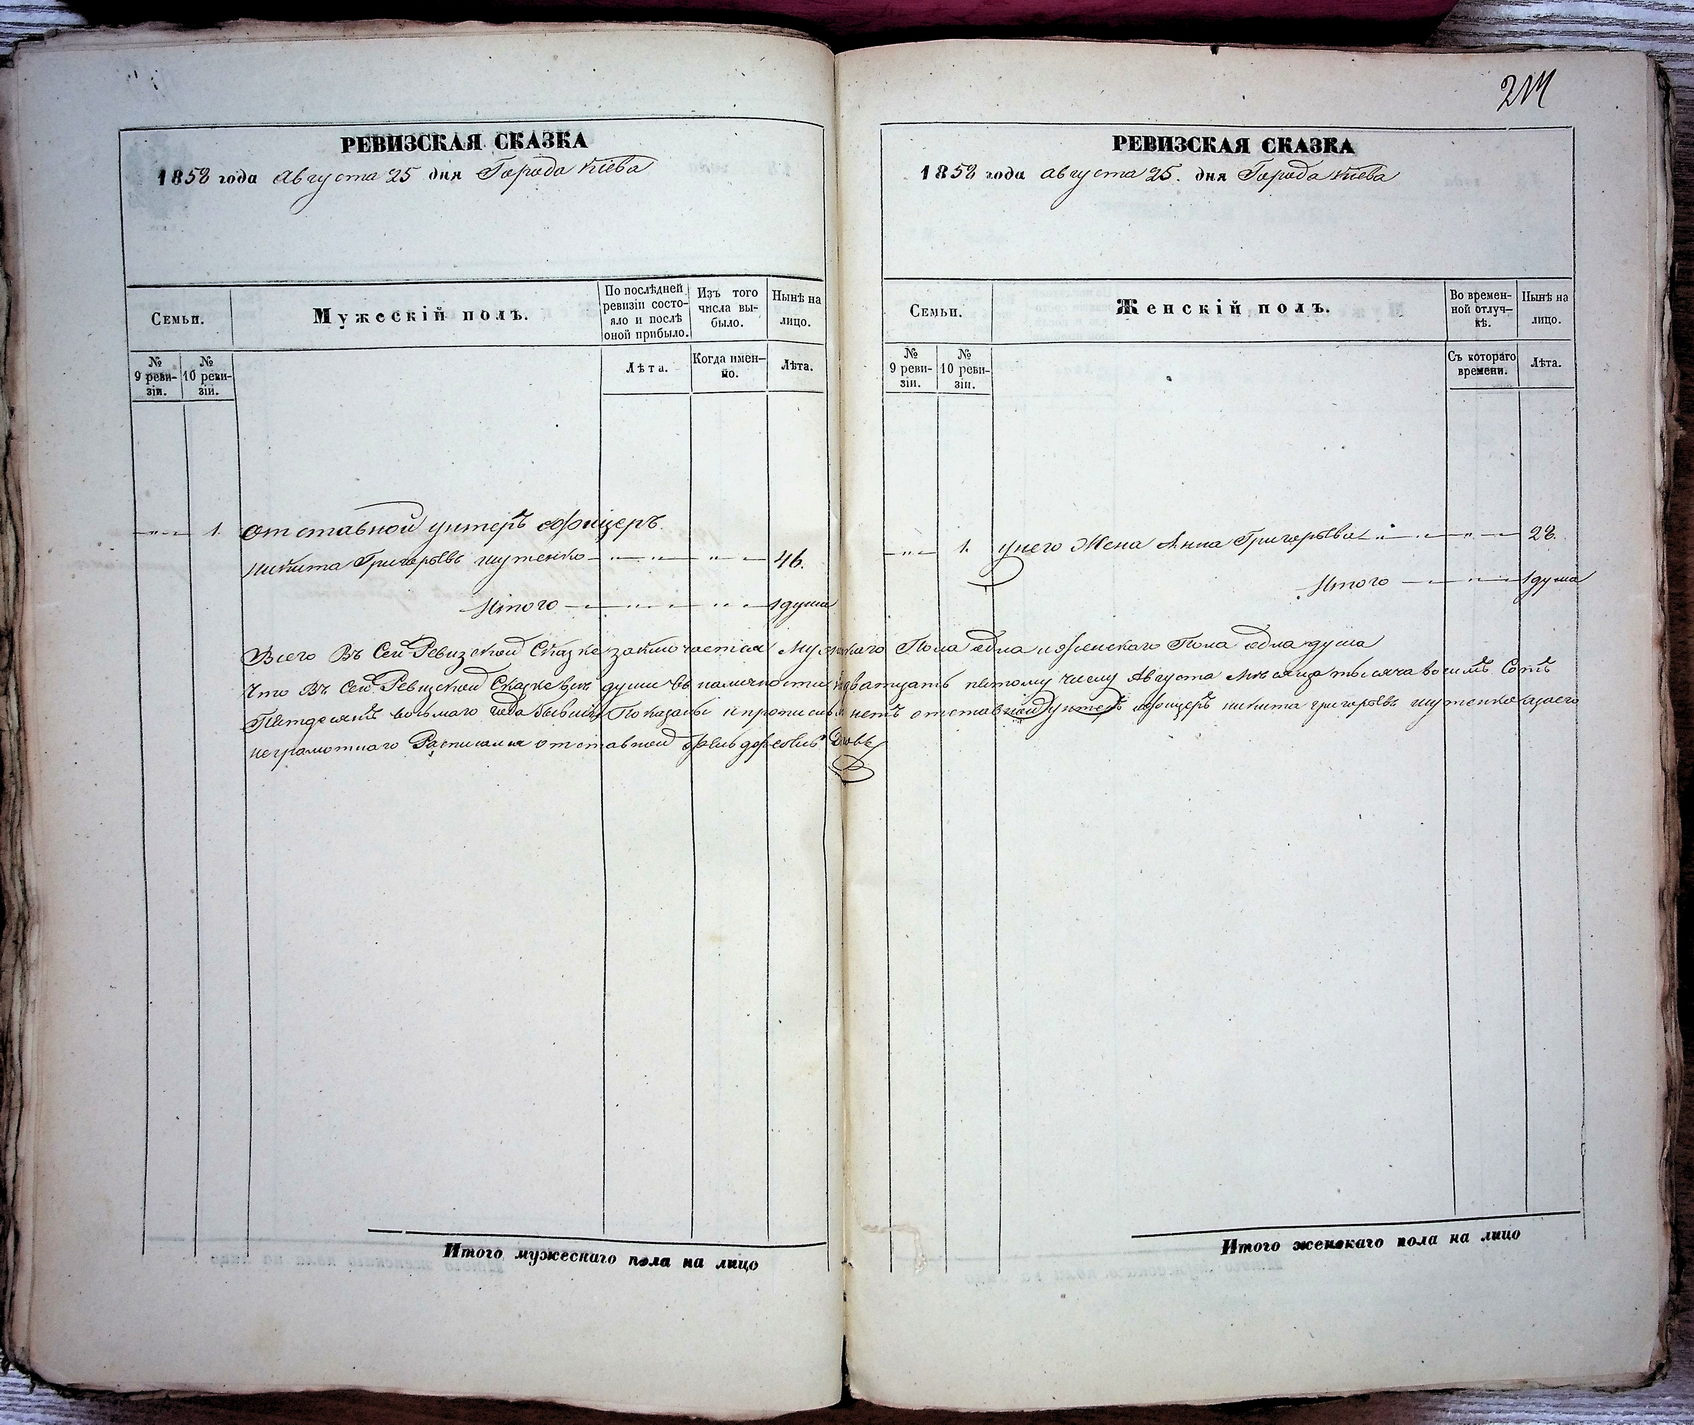 214
РЕВИЗСКАЯ СКАЗКА
1858 года августа 25 дня Города Кіева
Семьи.
Мужескій полъ.
По послѣдней ревизіи состояло и послѣ оной прибыло.
Изъ того числа выбыло.
Нынѣ на лицо.
№ 9 ревизіи.
№ 10 ревизіи.
Лѣта.
Когда именно.
Лѣта.
1. отставной унтеръ офицеръ
никита Григорьевъ шутенко 46.
Итого 1 душа
РЕВИЗСКАЯ СКАЗКА
1858 года августа 25. дня Города Кіева
Семьи.
Женскій полъ.
Во временной отлучкѣ.
Нынѣ на лицо.
№ 9 ревизіи.
№ 10 ревизіи.
Съ котораго времени.
Лѣта.
1. унего Жена Анна Григорьева 28.
Итого 1 душа
Всего Въ Сей Ревизской Сказке заключается Мужскаго Пола една иженскаго Пола една душа
Что Въ Сей Ревизской Сказке всѣ души въ наличности дватцать пятому числу Августа Мѣсяца тысяча восимъ Сотъ
Пятдесятъ восьмаго года Показаны ипрописныхъ нетъ отставной унтеръ офицеръ никита григорьевъ шутенко заего
неграмотнаго Росписался отставной
Итого мужескаго пола на лицо
Итого женскаго пола на лицо